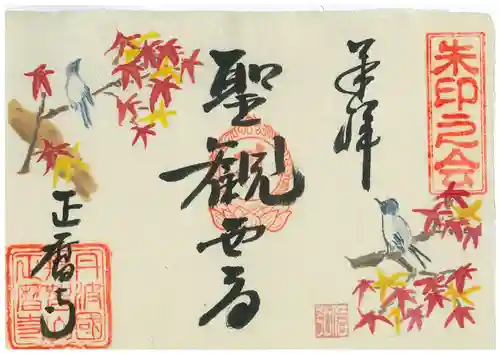 朱印之会
奉拝
聖観世音
正暦寺
丹波國
正暦寺